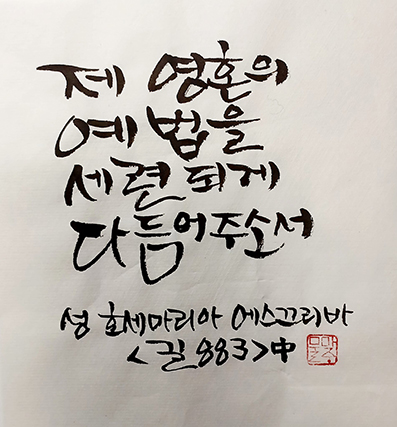 제 영혼의
예법을
세련되게
다듬어주소서
성 호세마리아 에스끄리바
<길 883>中